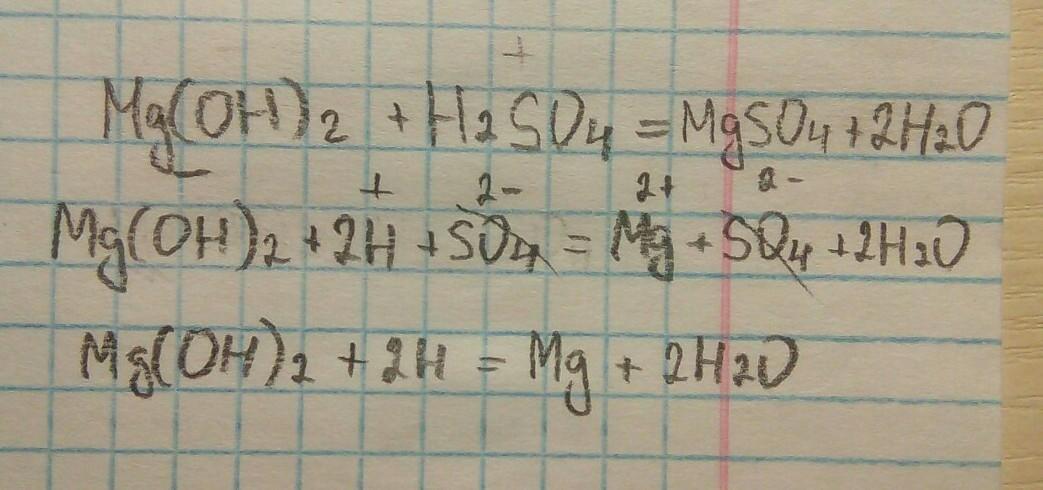 Mg(OH)2 + H2SO4 = MgSO4 + 2H2O
Mg(OH)2 + 2H⁺ + SO4²⁻ = Mg²⁺ + SO4²⁻ + 2H2O
Mg(OH)2 + 2H = Mg + 2H2O